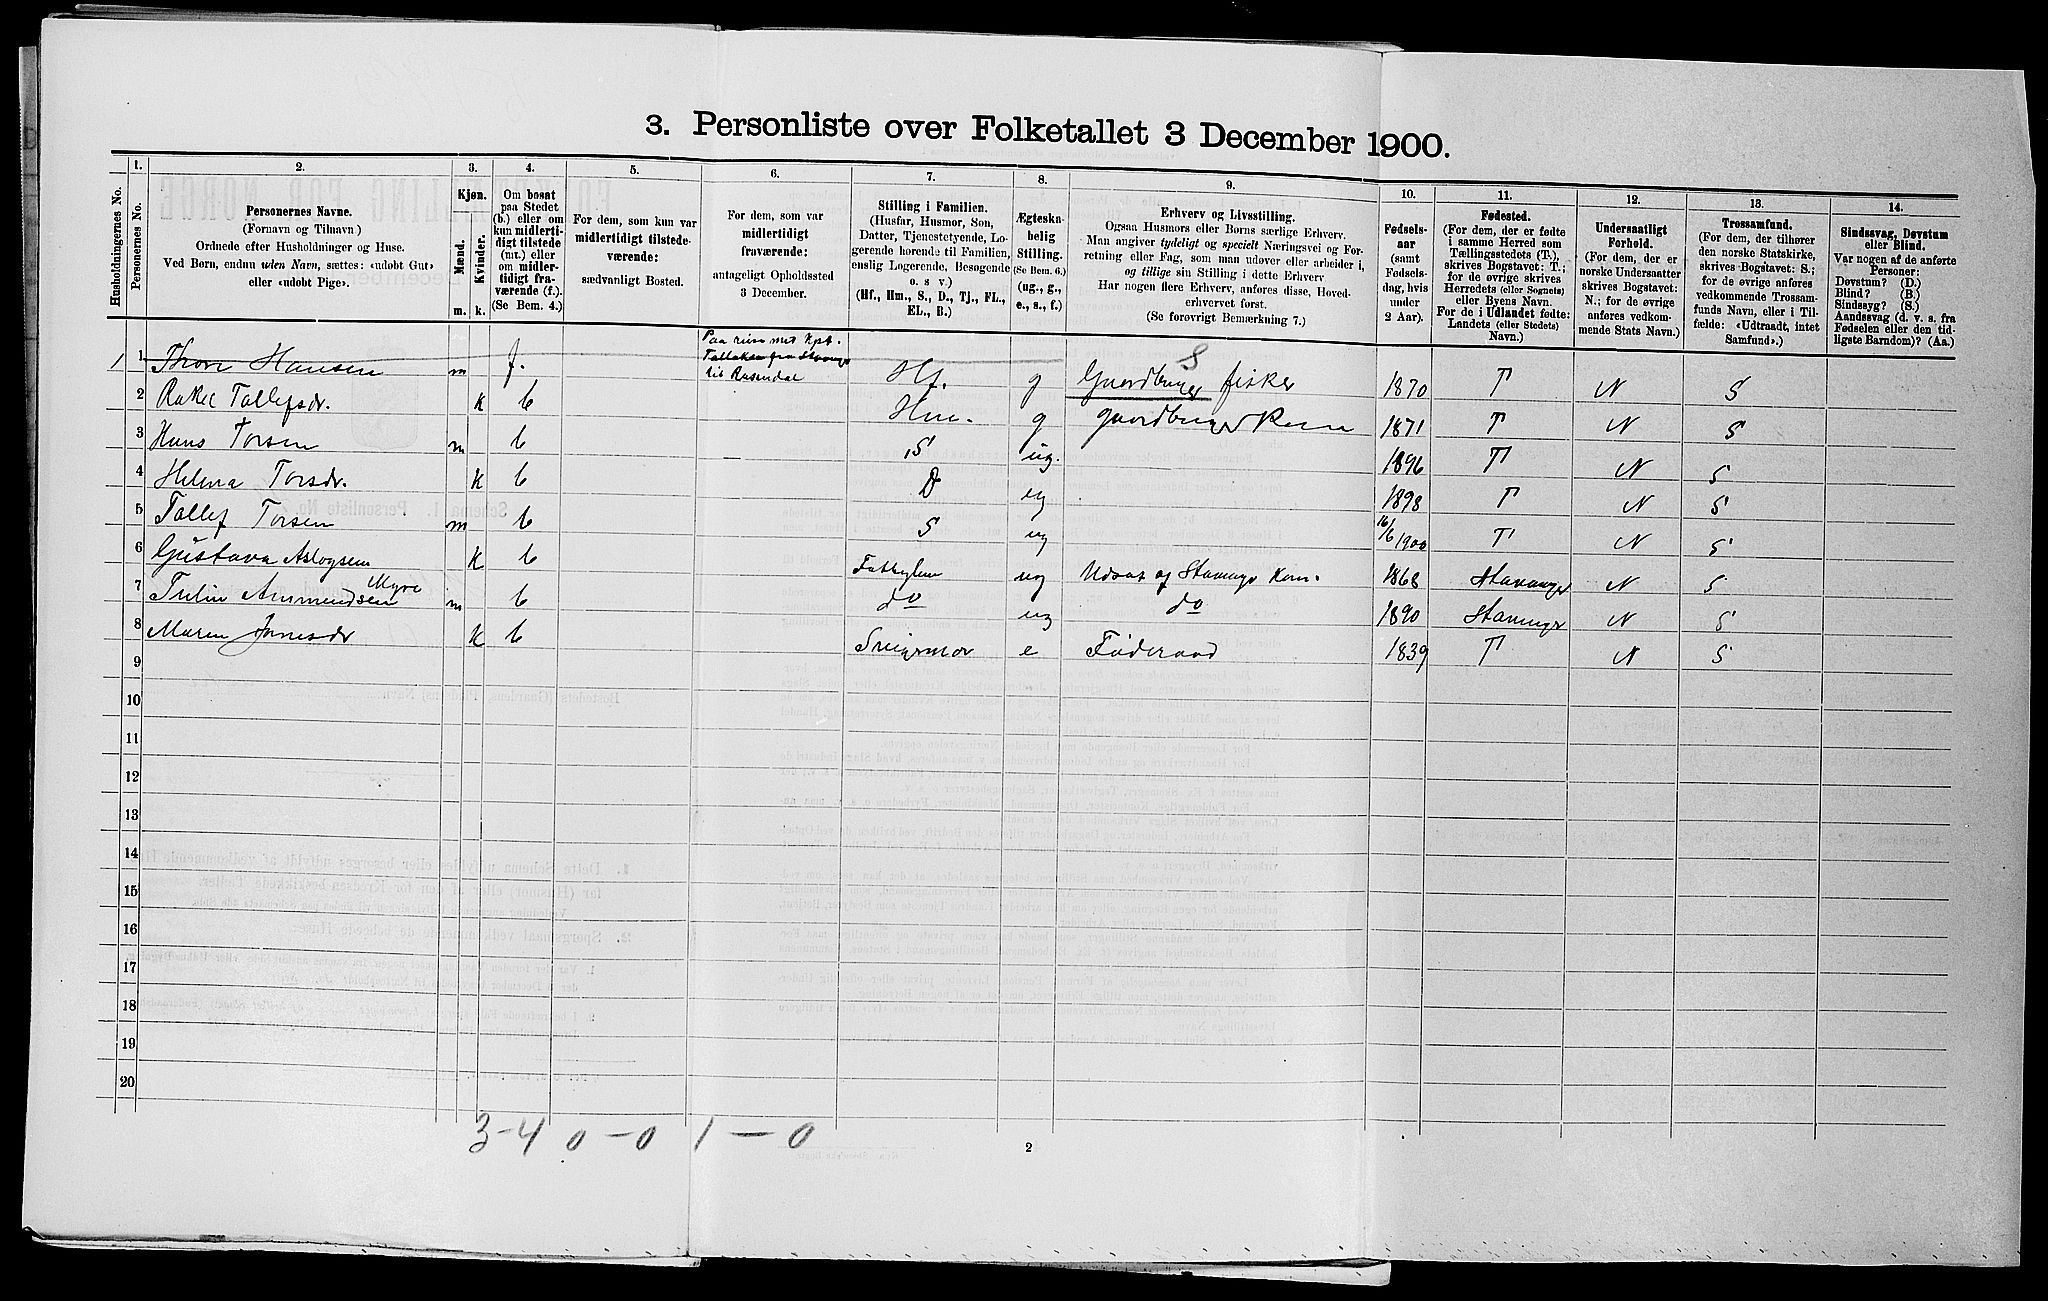 3. Personliste over Folketallet 3 December 1900.
Husholdningernes No.
1.
Personernes No.
2.
Personernes Navne.
(Fornavn og Tilnavn)
Ordnede efter Husholdninger og Huse.
Ved Børn, endnu uden Navn, sættes: «udobt Gut»
eller «udobt Pige».
3.
Kjøn.
Mænd.
Kvinder.
m. k.
4.
Om bosat
paa Stedet
(b.) eller om
kun midlerti-
digt tilstede
(mt.) eller
om midler-
tidigt fra-
værende (f.).
(Se Bem. 4.)
5.
For dem, som kun var
midlertidigt tilstede-
værende:
sædvanligt Bosted.
6.
For dem, som var
midlertidigt
fraværende:
antageligt Opholdssted
3 December.
7.
Stilling i Familien.
(Husfar, Husmor, Søn,
Datter, Tjenestetyende, Lo-
gerende hørende til Familien,
enslig Logerende, Besøgende
o. s. v.)
(Hf., Hm., S., D., Tj., FL.,
EL., B.)
8.
Ægteska-
belig
Stilling.
(Se Bem. 6.)
(ug., g.,
e., s., f.)
9.
Erhverv og Livsstilling.
Ogsaa Husmors eller Børns særlige Erhverv.
Man angiver tydeligt og specielt Næringsvei og For-
retning eller Fag, som man udøver eller arbeider i,
og tillige sin Stilling i dette Erhverv
Har nogen flere Erhverv, anføres disse, Hoved-
erhvervet først.
(Se forøvrigt Bemærkning 7.)
10.
Fødsels-
aar
(samt
Fødsels-
dag, hvis
under
2 Aar).
11.
Fødested.
(For dem, der er fødte
i samme Herred som
Tællingsstedets (T.),
skrives Bogstavet: T.;
for de øvrige skrives
Herredets (eller Sognets)
eller Byens Navn.
For de i Udlandet fødte:
Landets (eller Stedets)
Navn.)
12.
Undersaatligt
Forhold.
(For dem, der er
norske Undersaatter
skrives Bogstavet:
N.; for de øvrige
anføres vedkom-
mende Stats Navn.)
13.
Trossamfund.
(For dem, der tilhører
den norske Statskirke,
skrives Bogstavet: S.;
for de øvrige anføres
vedkommende Trossam-
funds Navn, eller i Til-
fælde: «Udtraadt, intet
Samfund».)
14.
Sindssvag, Døvstum
eller Blind.
Var nogen af de anførte
Personer:
Døvstum? (D.)
Blind? (B.)
Sindssyg? (S.)
Aandssvag (d. v. s. fra
Fødselen eller den tid-
ligste Barndom)? (Aa.)
1 1 Thore Hansen m f. Paa reise med Kpt.
Tollaksen fra Stavanger
til Rosendal Hf. g Gaardbruger fisker 1870 T N S
S
2 Rakel Tollefsdr. k b Hm. g gaardbruger Kone 1871 T N S
3 Hans Torsen m b S ug. 1896 T N S
4 Helena Torsdr. k b D ug 1898 T N S
5 Tollef Torsen m b S ug 16/6 1900 T N S
6 Gustava Aslogsen k b ug Udsat af Stavanger Kom. 1868 Stavanger N S
Myre
7 Amundsen m b do ug do 1890 Stavanger N S
8 Maren k b Svigermor e Føderaad 1839 T N S
9
10
11
12
13
14
15
16
17
18
19
20
3-4 0-0 1-0
2